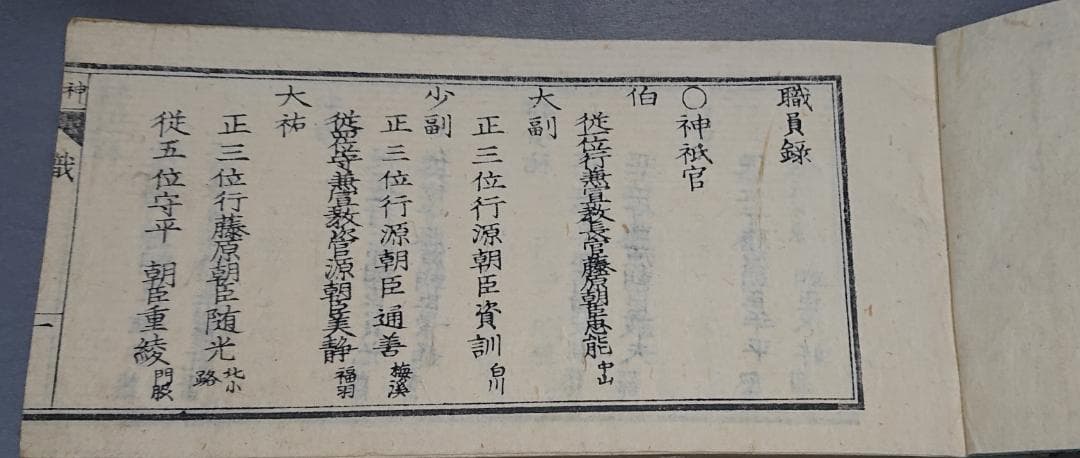 職員録
〇神祇官
伯
従一位行兼宣教長官藤原朝臣忠能 中山
大副
正三位行源朝臣資訓 白川
少副
正三位行源朝臣通善 梅溪
従四位守兼宣教次官源朝臣美静 福羽
大祐
正三位行藤原朝臣随光 北小路
従五位守平 朝臣重綾 門脇
神
職
一